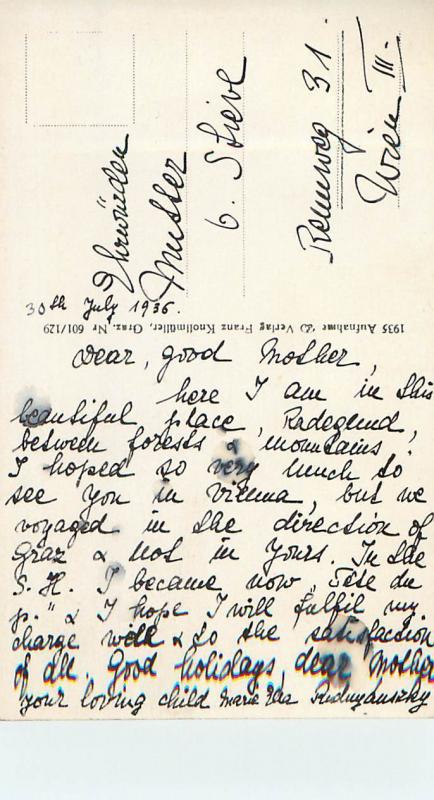 Ehrwürden
Mutter
G. Stieve
Rennweg 31
Wien III.
30th July 1936.
1935 Aufnahme & Verlag Franz Knollmüller, Graz. Nr 601/129
Dear, good Mother,
here I am in this
beautiful place, Radegund,
between forests & mountains!
I hoped so very much to
see you in Vienna, but we
voyaged in the direction of
Graz & not in yours. In the
S. H. I became now „Tête du
p." & I hope I will fulfil my
charge well & to the satisfaction
of all. Good holidays, dear Mother
your loving child Marie Ida